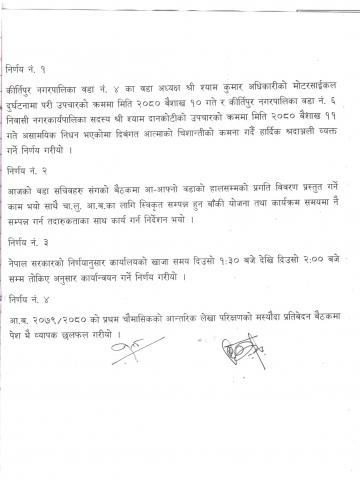 निर्णय नं. १
कीर्तिपुर नगरपालिका वडा नं. ४ का वडा अध्यक्ष श्री श्याम कुमार अधिकारीको मोटरसाईकल
दुर्घटनामा परी उपचारको क्रममा मिति २०८० बैशाख १० गते र कीर्तिपुर नगरपालिका वडा नं. ६
निवासी नगरकार्यपालिका सदस्य श्री श्याम दानकोटीको उपचारको क्रममा मिति २०८० बैशाख ११
गते असामयिक निधन भएकोमा दिबंगत आत्माको चिशान्तीको कमना गर्दै हार्दिक श्रदाञ्जली व्यक्त
गर्ने निर्णय गरीयो ।
निर्णय नं. २
आजको वडा सचिवहरु संगको बैठकमा आ-आफ्नो वडाको हालसम्मको प्रगति विवरण प्रस्तुत गर्ने
काम भयो साथै चा.लु. आ.ब.का लागि स्विकृत सम्पन्न हुन बाँकी योजना तथा कार्यक्रम समयमा नै
सम्पन्न गर्न तदारुकताका साथ कार्य गर्न निर्देशन भयो ।
निर्णय नं. ३
नेपाल सरकारको निर्णयानुसार कार्यालयको खाजा समय दिउसो १:३० बजे देखि दिउसो २:०० बजे
सम्म तोकिए अनुसार कार्यान्वयन गर्ने निर्णय गरीयो ।
निर्णय नं. ४
आ.ब. २०७९/२०८० को प्रथम चौमासिकको आन्तरिक लेखा परिक्षणको मस्यौदा प्रतिबेदन बैठकमा
पेश भै व्यापक छलफल गरीयो ।